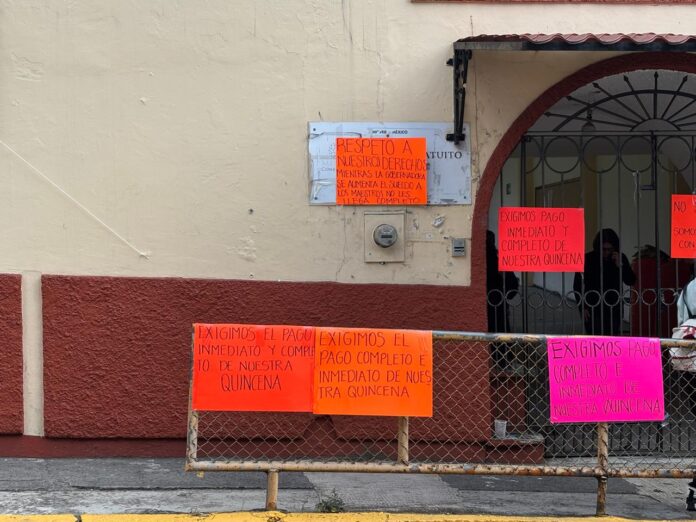 MÉXICO
ATUITO
RESPETO A
NUESTROS DERECHOS
MIENTRAS LA GOBERNADORA
SE AUMENTA EL SUELDO A
LOS MAESTROS NO LES
LLEGA COMPLETO
EXIGIMOS PAGO
INMEDIATO Y
COMPLETO DE
NUESTRA QUINCENA
NO
SOMO
CON
EXIGIMOS EL PAGO
INMEDIATO Y COMPLE
TO DE NUESTRA
QUINCENA
EXIGIMOS EL
PAGO COMPLETO E
INMEDIATO DE NUES
TRA QUINCENA
EXIGIMOS PAGO
COMPLETO E
INMEDIATO DE
NUESTRA QUINCENA